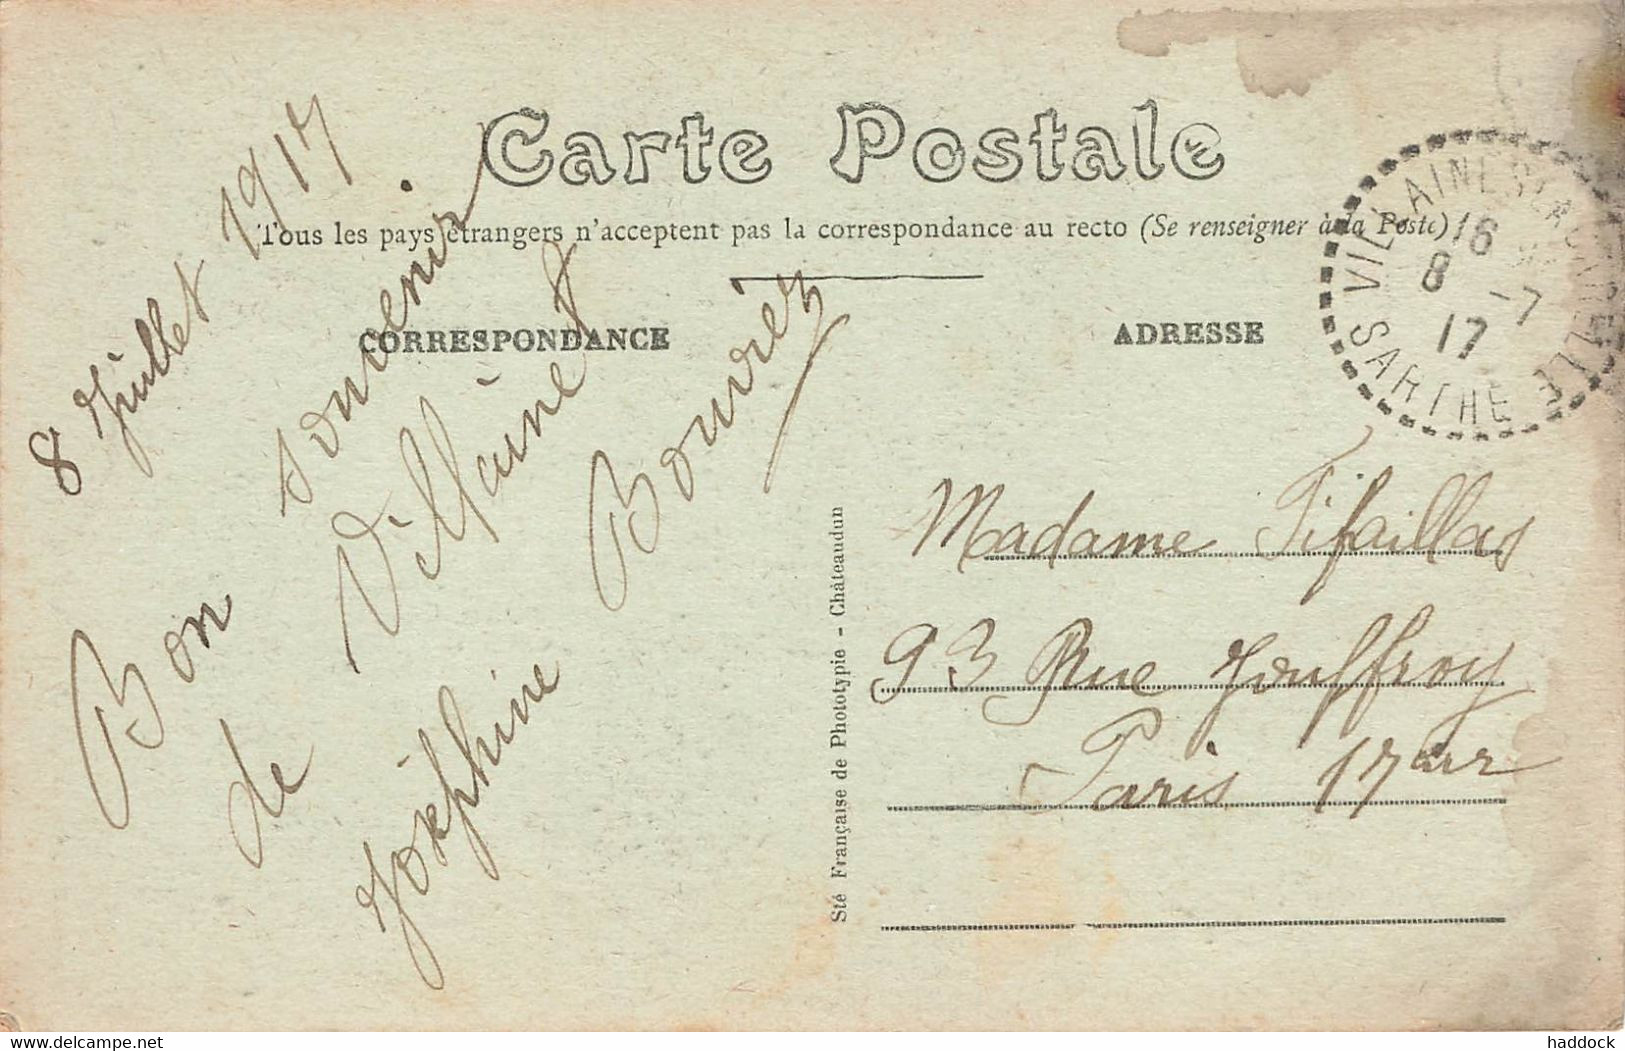 Carte Postale
Tous les pays étrangers n'acceptent pas la correspondance au recto (Se renseigner à la Poste)
CORRESPONDANCE
ADRESSE
8 Juillet 1917
Bon souvenir
de Villaines
Joséphine Bouvier
Sté Française de Phototypie - Châteaudun
VILLAINES LA GONELLE
16
8 -7
17
SARTHE
Madame
93 Rue Jouffroy
Paris 17 arr
delcampe.net
haddock